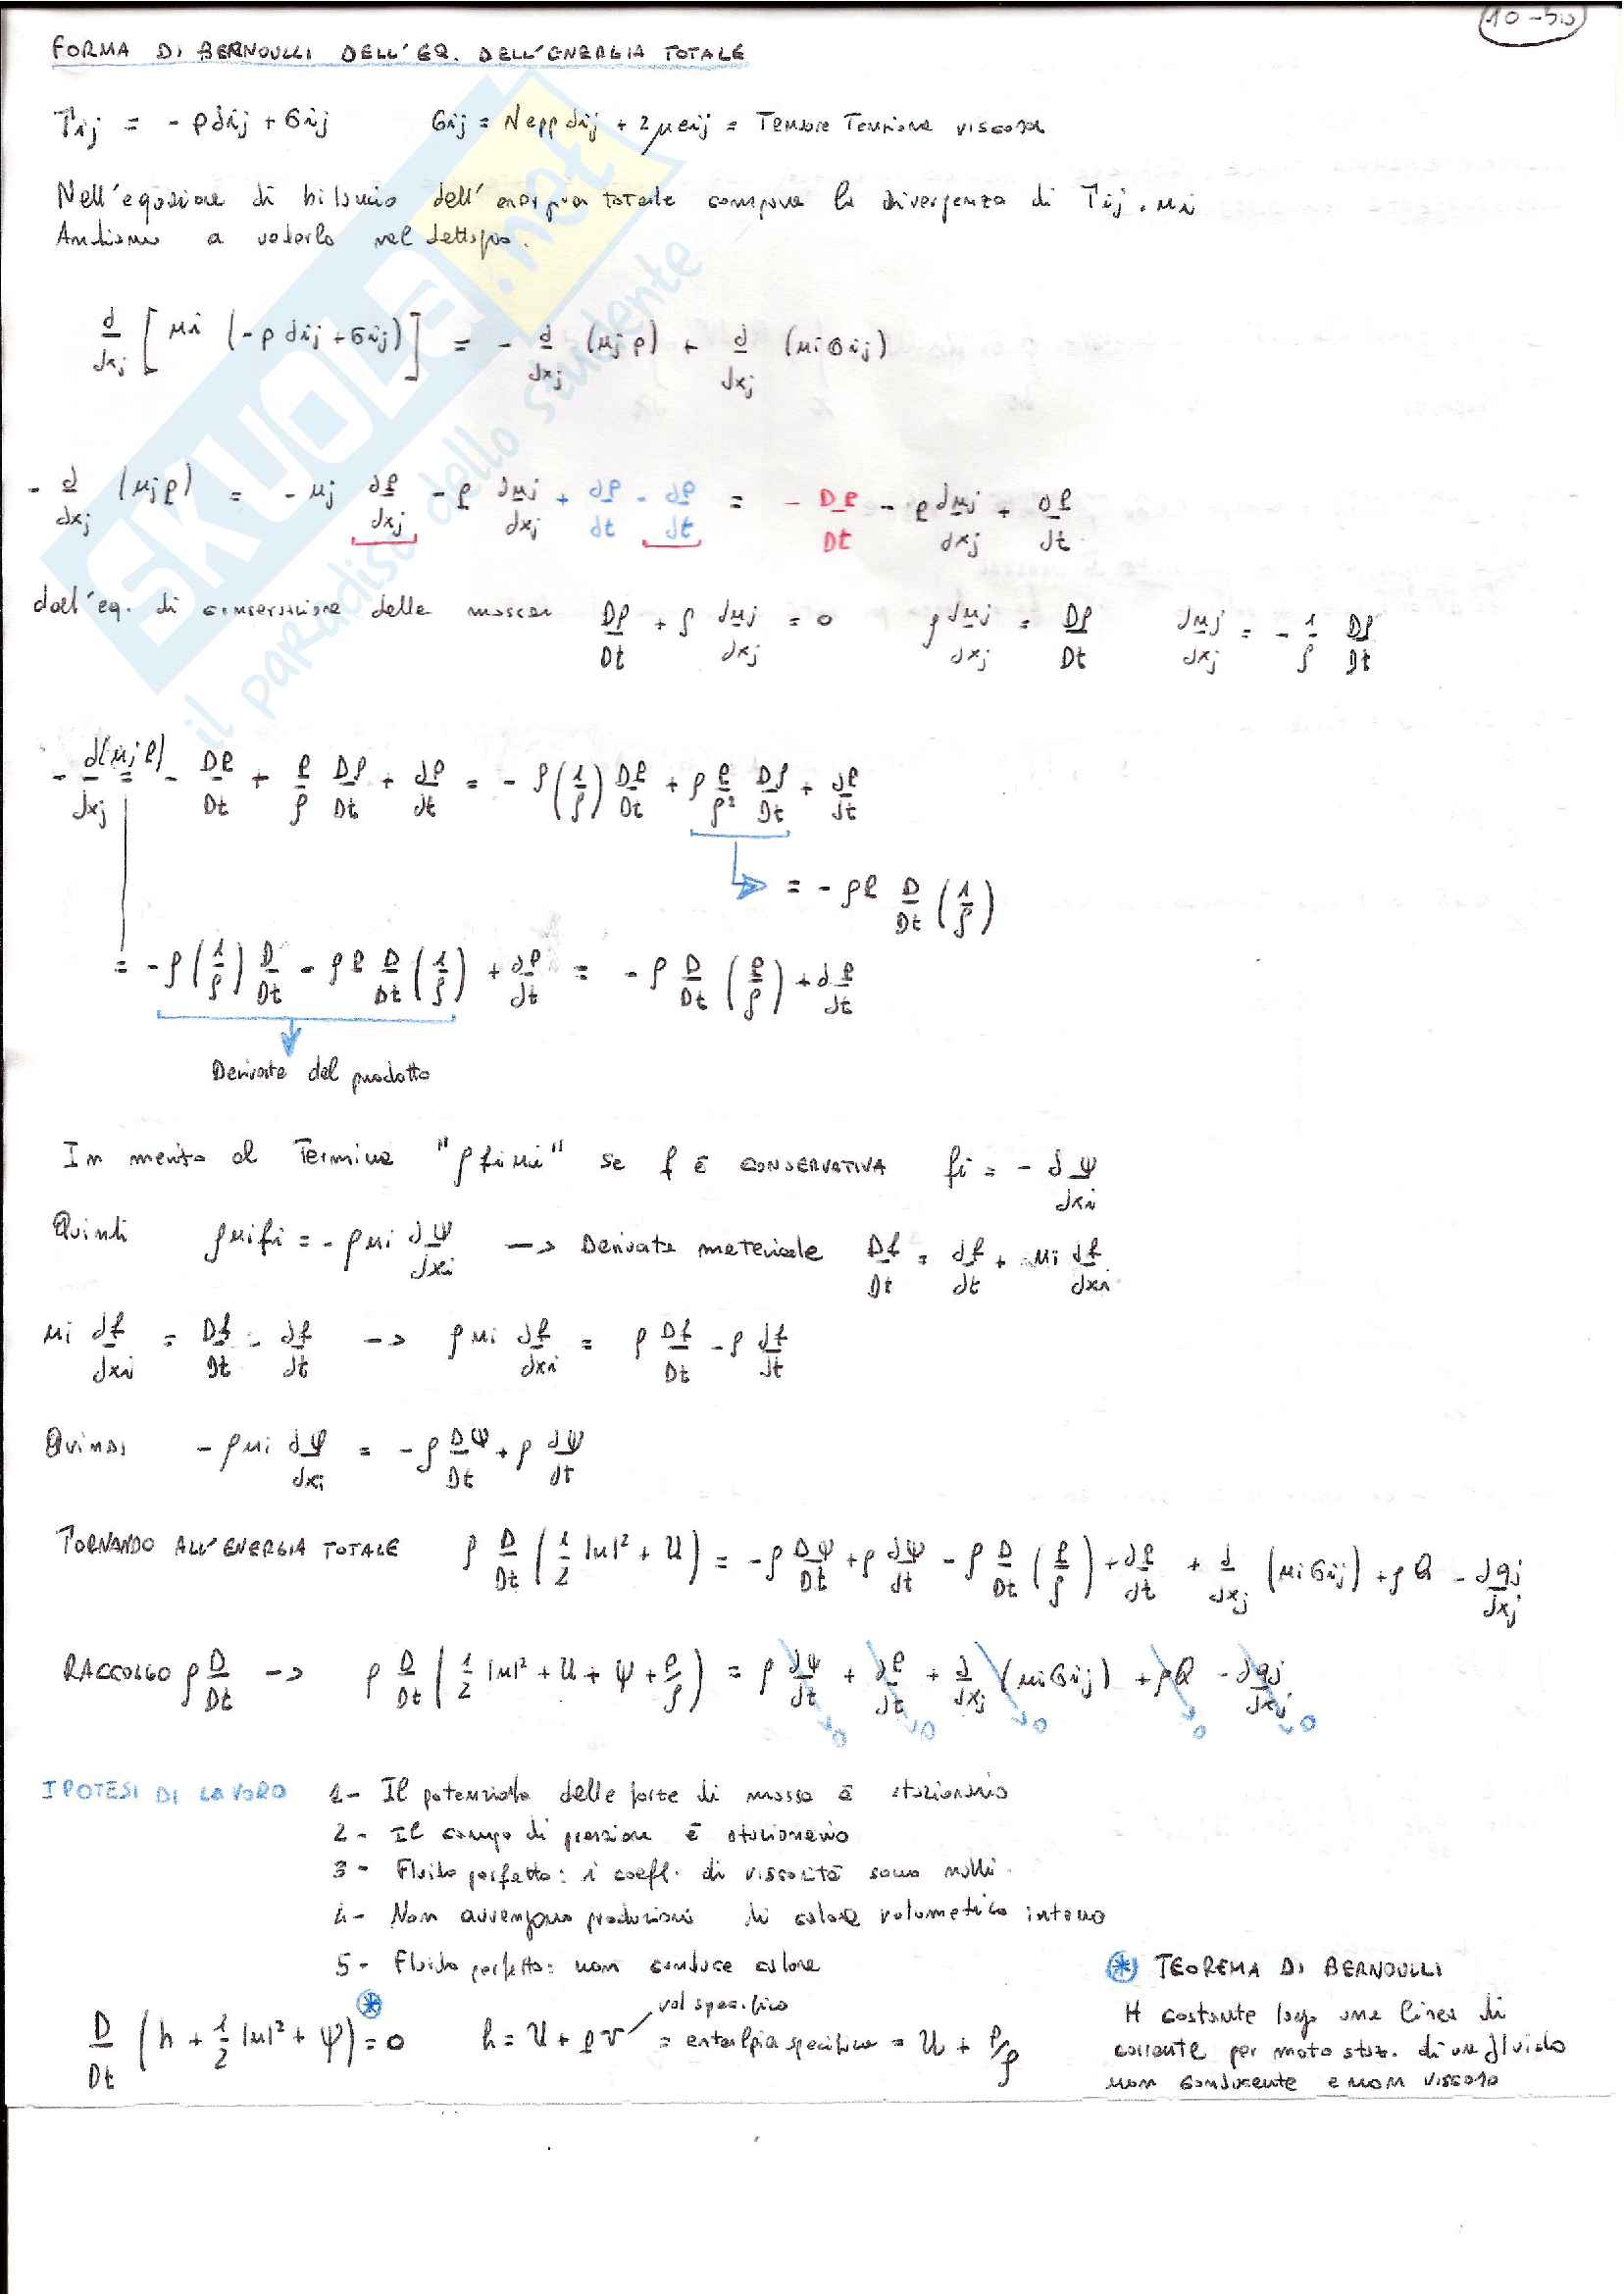 10-bis
FORMA DI BERNOULLI DELL'EQ. DELL'ENERGIA TOTALE
Tij = - pδij + σij    σij = λepp δij + 2μeij = Tensore Tensione viscosa
Nell'equazione di bilancio dell'energia totale compare la divergenza di Tij · ui
Andiamo a vederlo nel dettaglio.
∂/∂xj [ui (-p δij + σij)] = - ∂/∂xj (uj p) + ∂/∂xj (ui σij)
- ∂/∂xj (uj p) = - uj ∂p/∂xj - p ∂uj/∂xj + ∂p/∂t - ∂p/∂t = - Dp/Dt - p ∂uj/∂xj + ∂p/∂t
dall'eq. di conservazione della massa Dρ/Dt + ρ ∂uj/∂xj = 0    ρ ∂uj/∂xj = Dρ/Dt    ∂uj/∂xj = - 1/ρ Dρ/Dt
- ∂(uj p)/∂xj = - Dp/Dt + p/ρ Dρ/Dt + ∂p/∂t = - ρ(1/ρ) Dp/Dt + ρ p/ρ² Dρ/Dt + ∂p/∂t
= - ρp D/Dt (1/ρ)
= - ρ(1/ρ) D/Dt - ρp D/Dt (1/ρ) + ∂p/∂t = - ρ D/Dt (p/ρ) + ∂p/∂t
Derivata del prodotto
In merito al Termine "ρ fi ui" se f è CONSERVATIVA    fi = - ∂ψ/∂xi
Quindi    ρ ui fi = - ρ ui ∂ψ/∂xi → Derivata materiale Df/Dt = ∂f/∂t + ui ∂f/∂xi
ui ∂f/∂xi = Df/Dt - ∂f/∂t → ρ ui ∂f/∂xi = ρ Df/Dt - ρ ∂f/∂t
Quindi    - ρ ui ∂ψ/∂xi = - ρ Dψ/Dt + ρ ∂ψ/∂t
TORNANDO ALL'ENERGIA TOTALE    ρ D/Dt (1/2 |u|² + U) = - ρ Dψ/Dt + ρ ∂ψ/∂t - ρ D/Dt (p/ρ) + ∂p/∂t + ∂/∂xj (ui σij) + ρQ - ∂qj/∂xj
RACCOLGO ρ D/Dt → ρ D/Dt (1/2 |u|² + U + ψ + p/ρ) = ρ ∂ψ/∂t + ∂p/∂t + ∂/∂xj (ui σij) + ρQ - ∂qj/∂xj
→0 →0 →0 →0 →0
IPOTESI DI LAVORO    1- Il potenziale delle forze di massa è stazionario
2- Il campo di pressione è stazionario
3- Fluido perfetto: i coeff. di viscosità sono nulli.
4- Non avvengono produzioni di calore volumetico interno
5- Fluido perfetto: non conduce calore
D/Dt (h + 1/2 |u|² + ψ) = 0    h = U + pv = entalpia specifica = U + p/ρ
vol specifico
* TEOREMA DI BERNOULLI
H costante lungo una linea di
corrente per moto staz. di un fluido
non conducente e non viscoso
SKUOLA.net
il paradiso dello studente